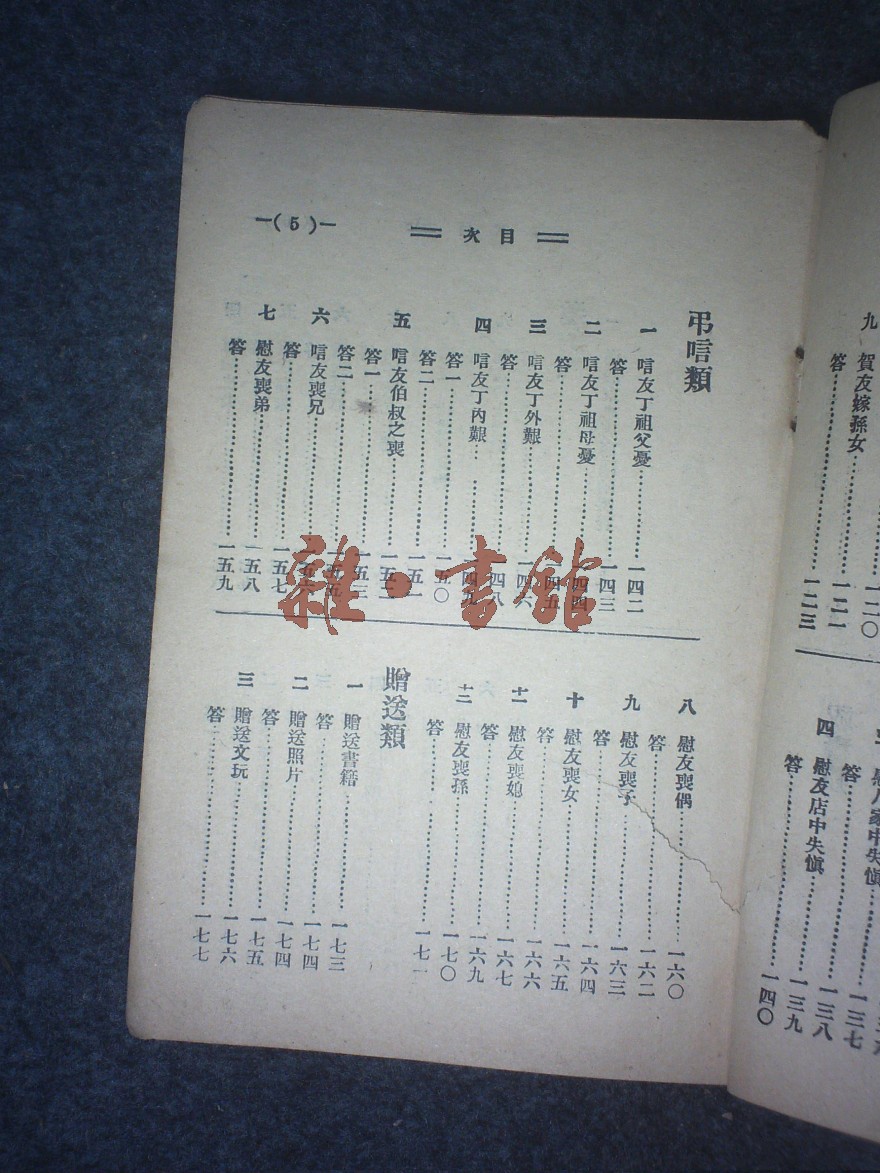 一二〇
九 賀友嫁孫女……一二一
答……一二三
家中失愼……一三七
答……一三八
四 慰友店中失愼……一三九
答……一四〇
目次
—(5)—
弔唁類
一 唁友丁祖父憂……一四二
答……一四三
二 唁友丁祖母憂……一四四
答……一四五
三 唁友丁外艱……一四六
答……一四八
四 唁友丁內艱……一四九
答一……一五〇
答二……一五一
五 唁友伯叔之喪……一五二
答一……一五三
答二……一五五
六 唁友喪兄……一五六
答……一五七
七 慰友喪弟……一五八
答……一五九
八 慰友喪偶……一六〇
答……一六二
九 慰友喪子……一六三
答……一六四
十 慰友喪女……一六五
答……一六六
十一 慰友喪媳……一六七
答……一六九
十二 慰友喪孫……一七〇
答……一七一
贈送類
一 贈送書籍……一七三
答……一七四
二 贈送照片……一七四
答……一七五
三 贈送文玩……一七六
答……一七七
雜·書館